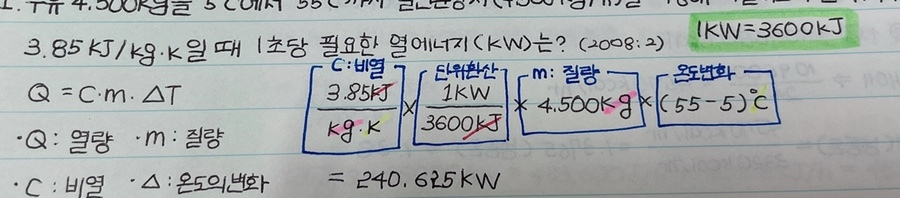 1. 우유 4.500kg을 5℃에서 55℃까지
3.85KJ/kg·K일 때 1초당 필요한 열에너지(KW)는? (2008:2)
1KW=3600kJ
Q = C·m·ΔT
·Q: 열량 ·m: 질량
·C: 비열 ·Δ:온도의변화
C:비열 단위환산 m: 질량 온도변화
3.85KJ/kg·K × 1KW/3600kJ × 4.500kg × (55-5)℃
= 240.625KW